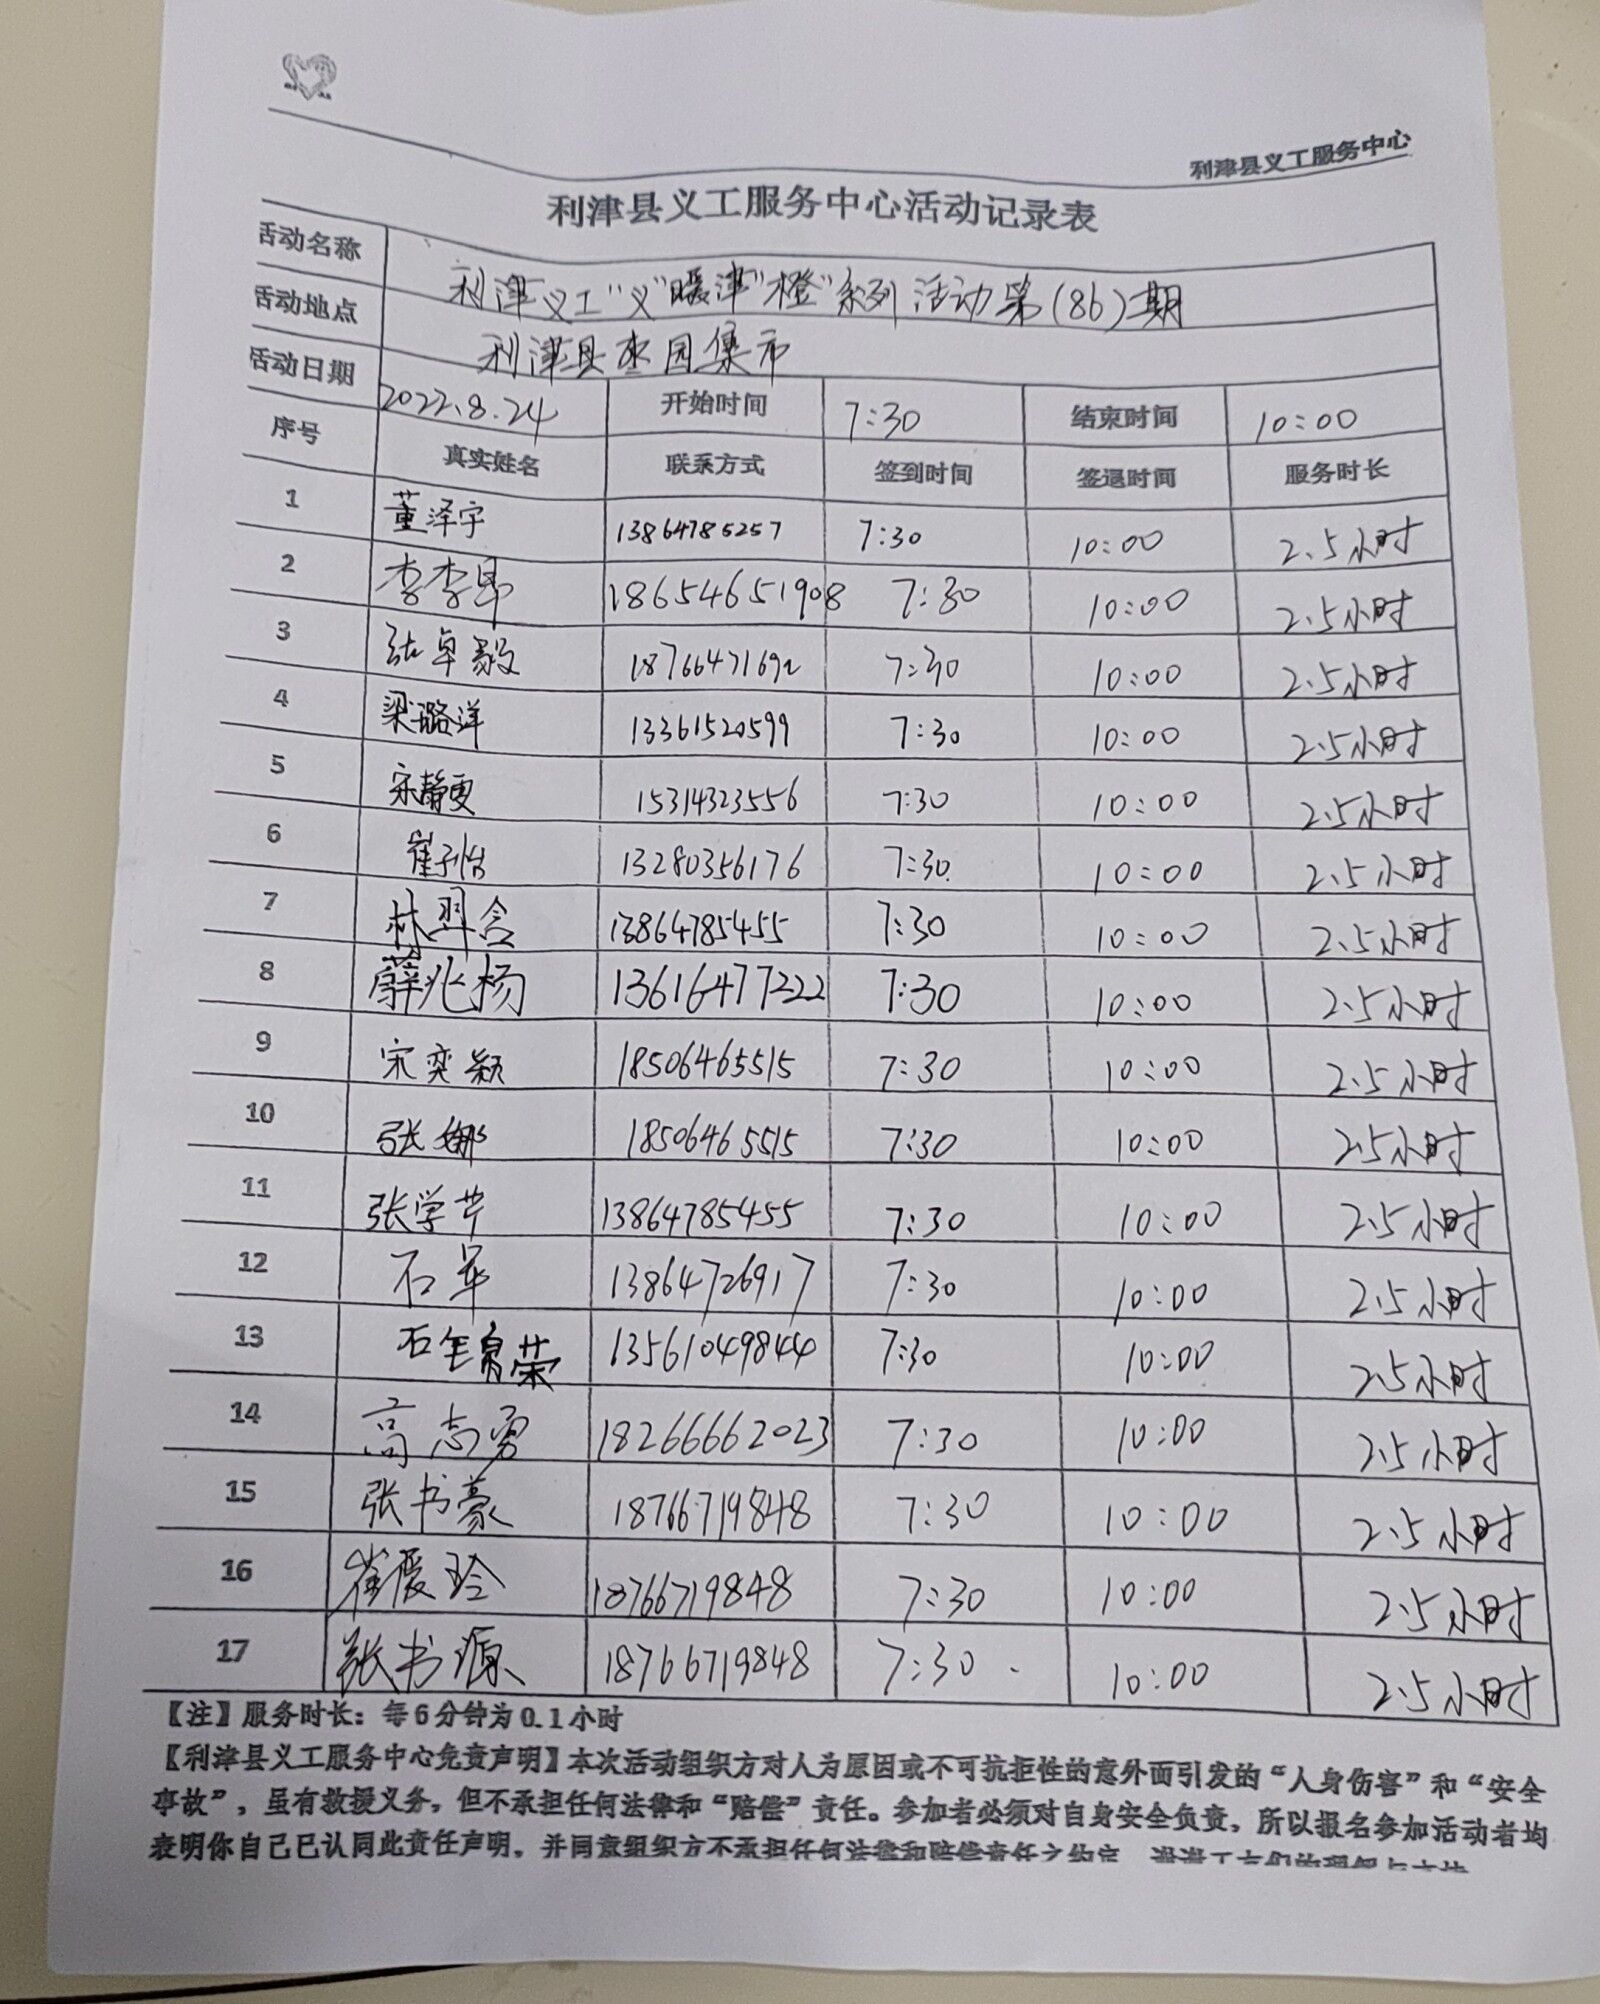 利津县义工服务中心
利津县义工服务中心活动记录表
活动名称 利津义工"义"暖津"橙"系列活动第(86)期
活动地点 利津县枣园集市
活动日期 2022.8.24 开始时间 7:30 结束时间 10:00
序号 真实姓名 联系方式 签到时间 签退时间 服务时长
1 董泽宇 13864785257 7:30 10:00 2.5小时
2 李李昂 18654651908 7:30 10:00 2.5小时
3 张卓毅 18766471692 7:30 10:00 2.5小时
4 梁璐洋 13361520599 7:30 10:00 2.5小时
5 宋静雯 15314323556 7:30 10:00 2.5小时
6 崔子怡 13280356176 7:30 10:00 2.5小时
7 林羿含 13864785455 7:30 10:00 2.5小时
8 薛兆杨 13616477222 7:30 10:00 2.5小时
9 宋奕颖 18506465515 7:30 10:00 2.5小时
10 张娜 18506465515 7:30 10:00 2.5小时
11 张学芹 13864785455 7:30 10:00 2.5小时
12 石军 13864726917 7:30 10:00 2.5小时
13 石 荣 135610498444 7:30 10:00 2.5小时
14 高志勇 18266662023 7:30 10:00 2.5小时
15 张书豪 18766719848 7:30 10:00 2.5小时
16 崔爱玲 18766719848 7:30 10:00 2.5小时
17 张书源 18766719848 7:30 10:00 2.5小时
【注】服务时长：每6分钟为0.1小时
【利津县义工服务中心免责声明】本次活动组织方对人为原因或不可抗拒性的意外面引发的“人身伤害”和“安全
事故”，虽有救援义务，但不承担任何法律和“赔偿”责任。参加者必须对自身安全负责，所以报名参加活动者均
表明你自己已认同此责任声明，并同意组织方不承担任何法律和赔偿责任之约定